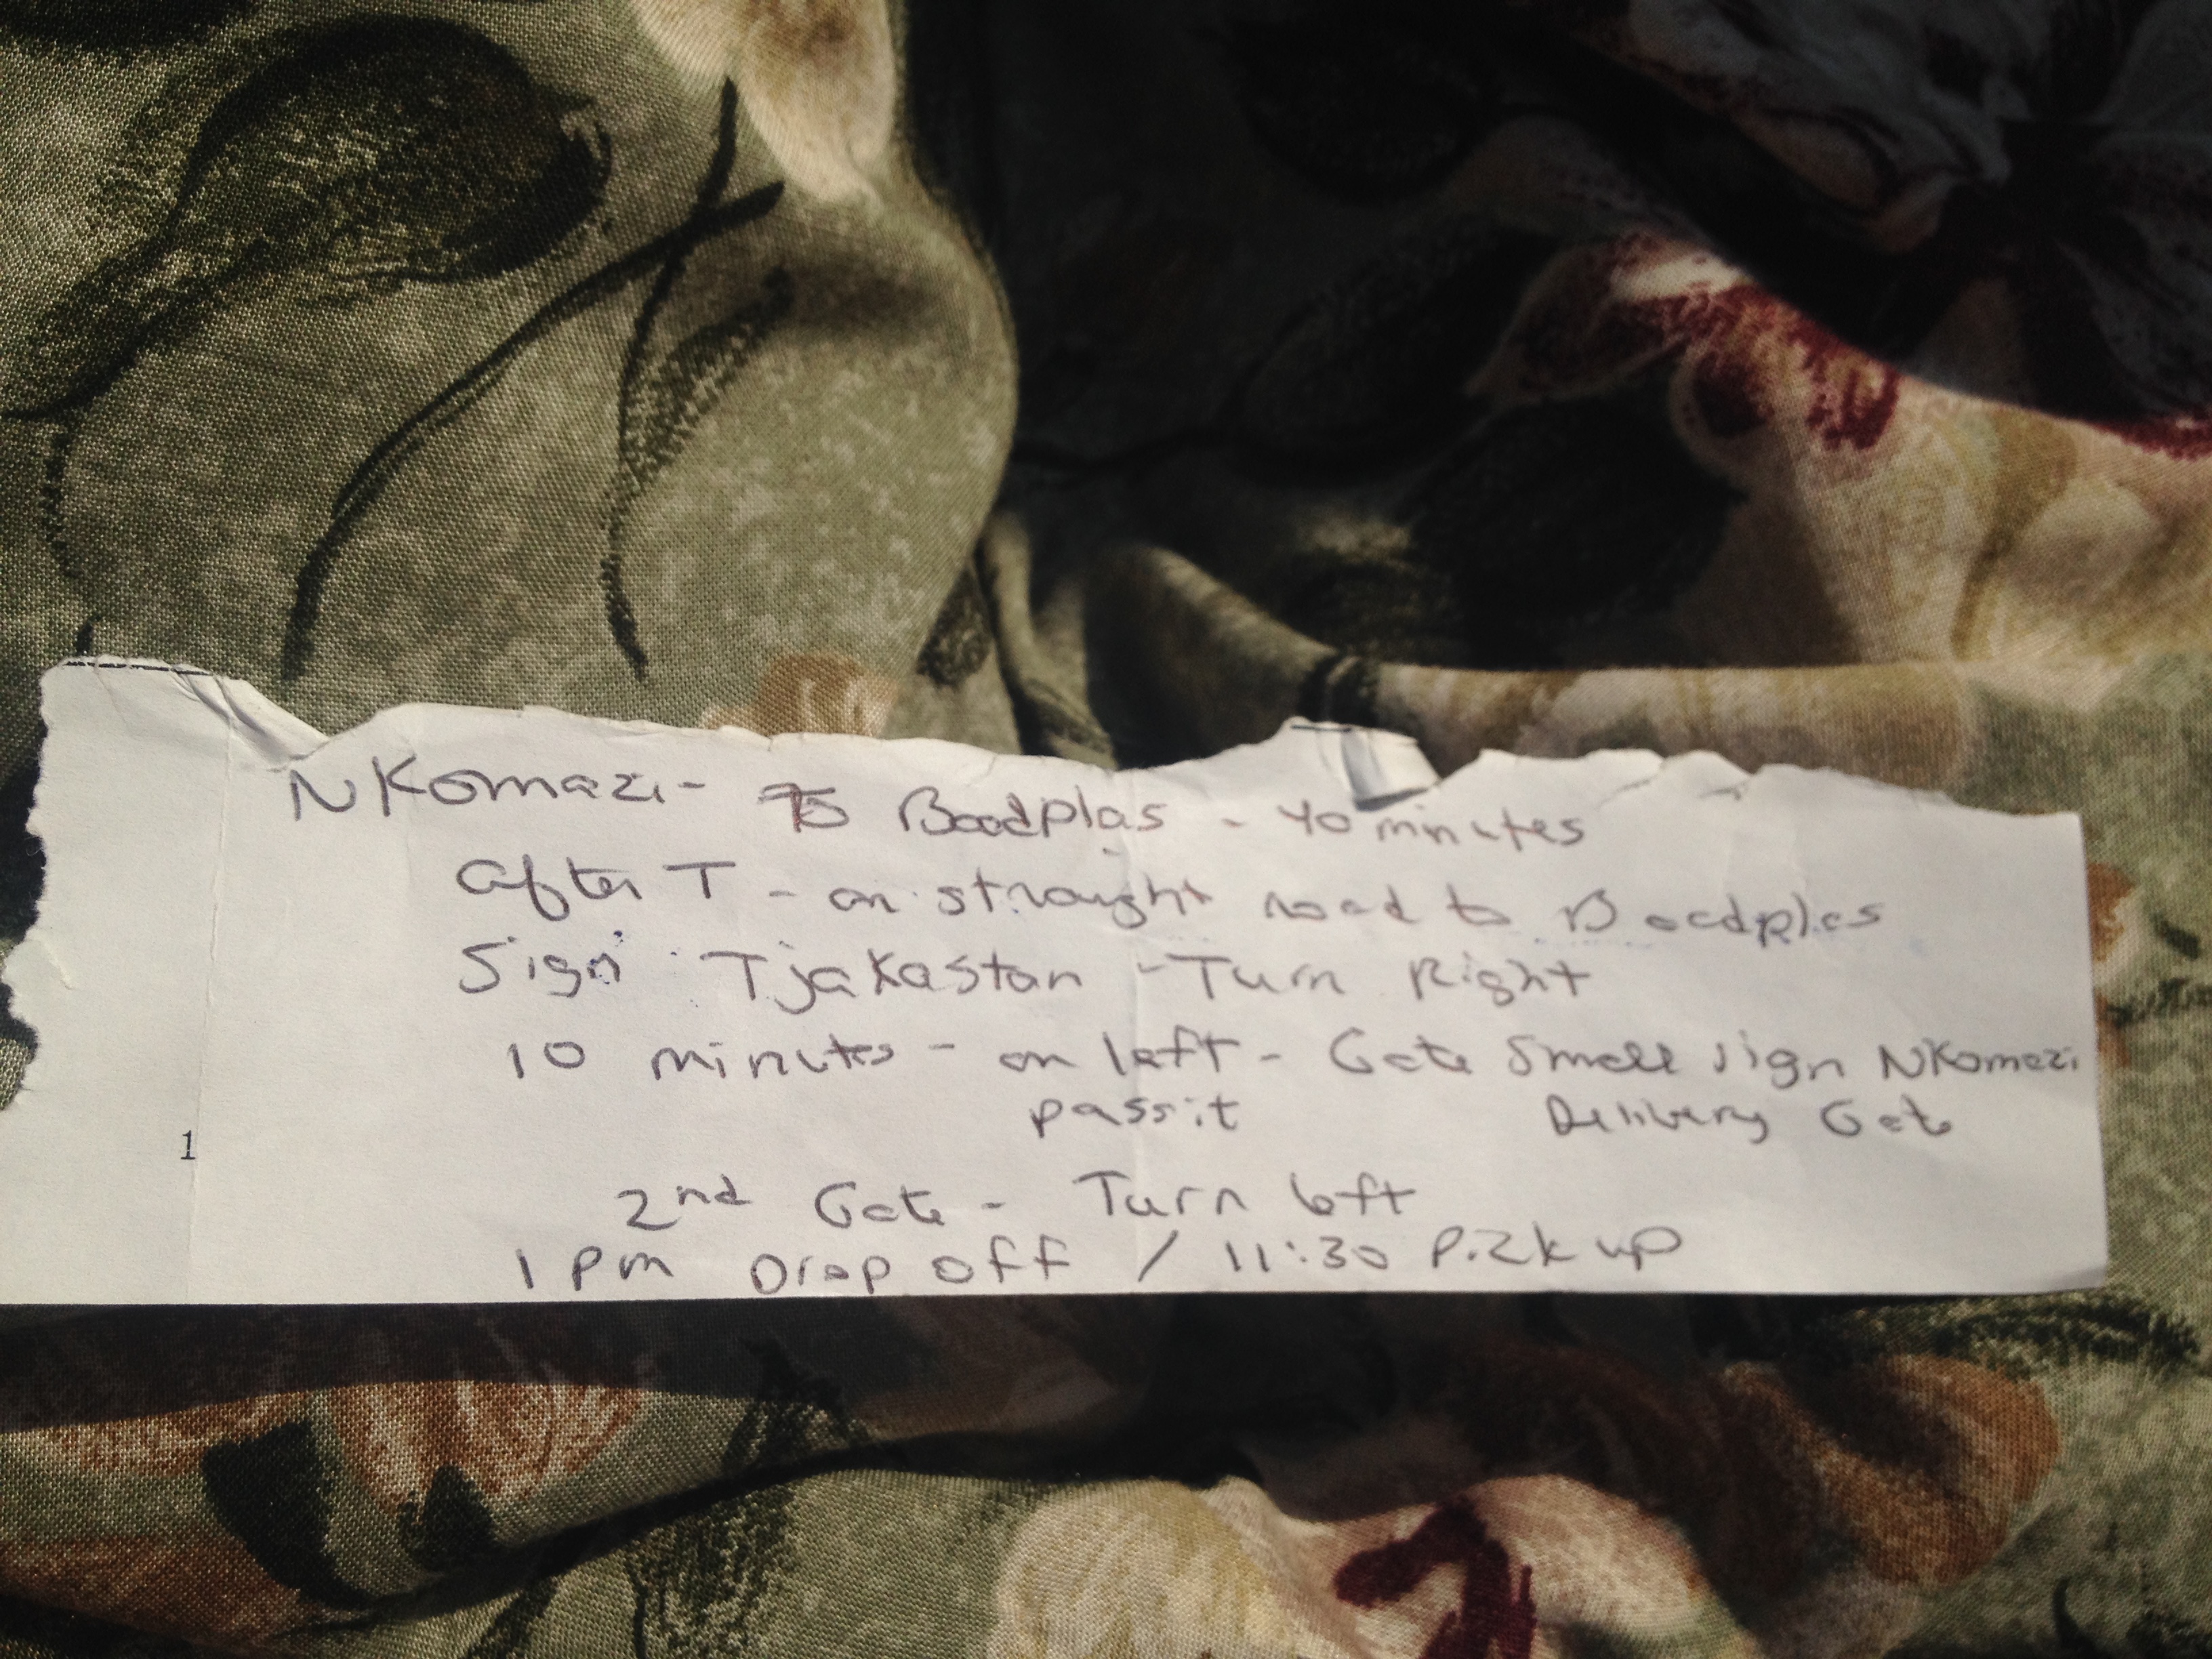 NKomazi - To Baadplas - 40 minutes
after T - on straight road to Baadplas
Sign Tjakastan - Turn Right
10 minutes - on left - Gate Small sign NKomazi
pass it Delivery Gate
1
2nd Gate - Turn left
1 pm Drop off / 11:30 Pick up